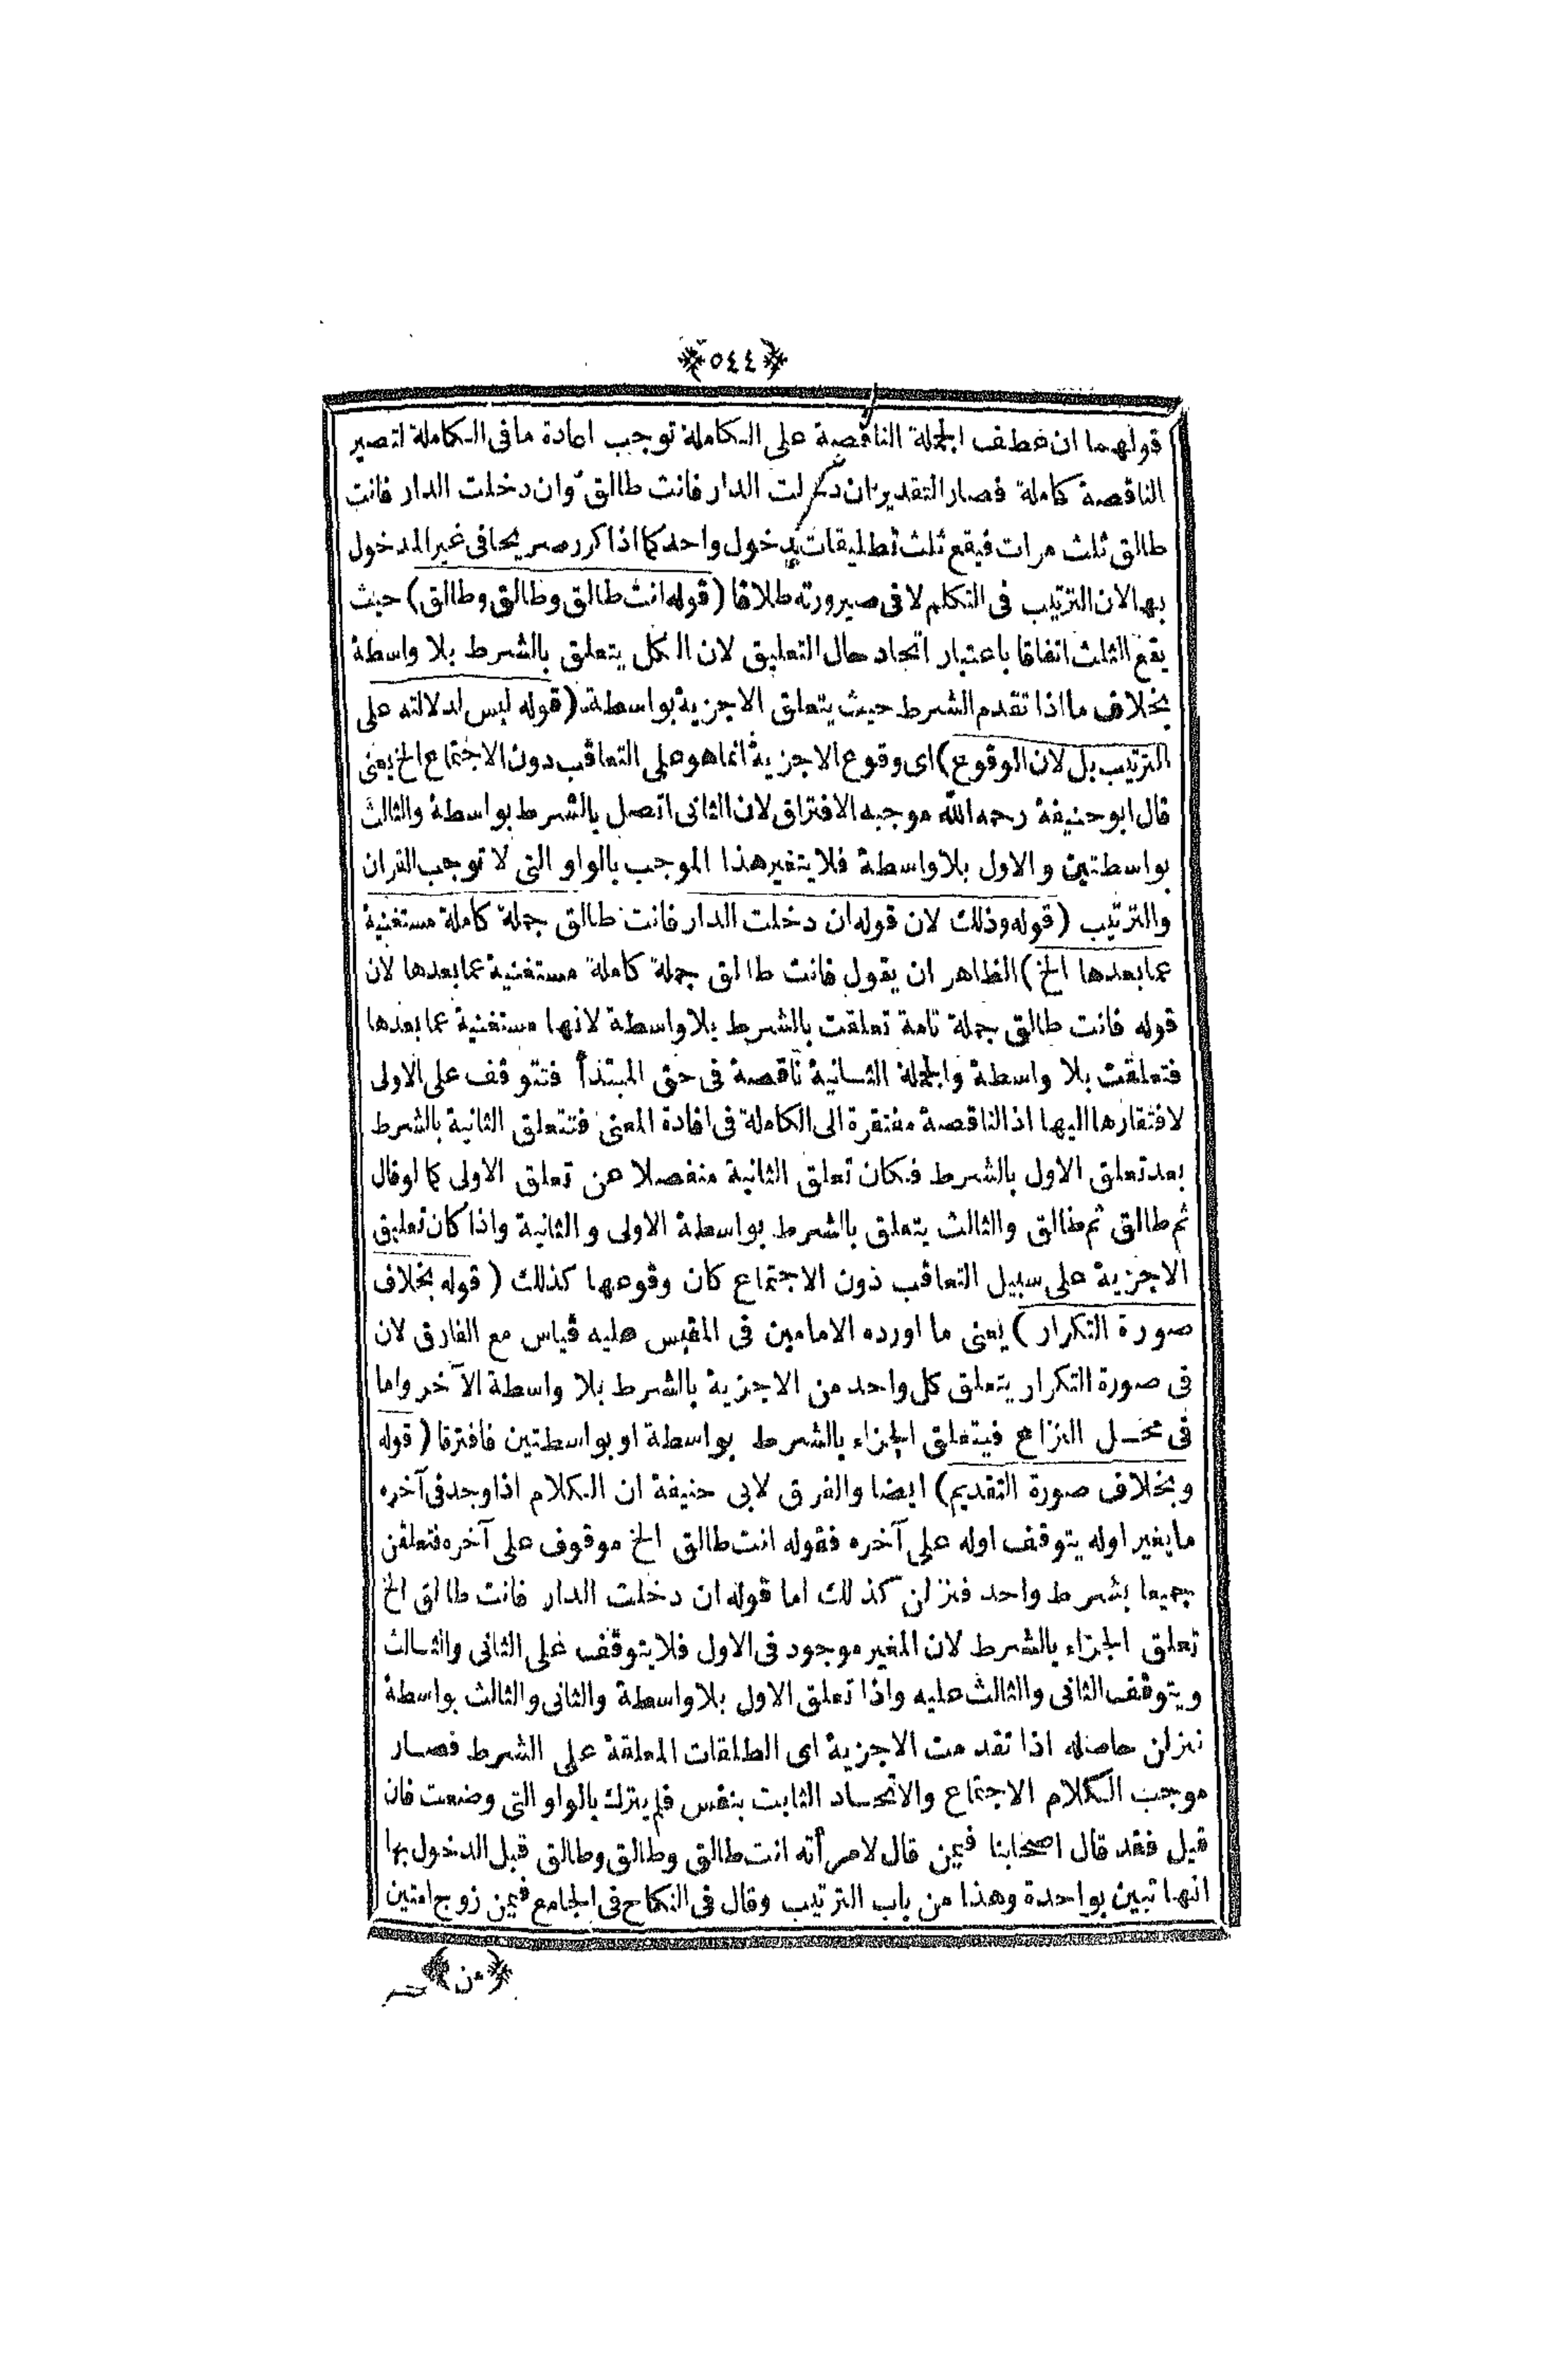 ﴿٥٤٤﴾
قولهما ان عطف الجملة الناقصة على الكاملة توجب اعادة ما فى الكاملة لتصير
الناقصة كاملة فصار التقدير ان دخلت الدار فانت طالق وان دخلت الدار فانت
طالق ثلث مرات فيقع ثلث تطليقات بدخول واحد كما اذا كرر صريحا فى غير المدخول
بها لان الترتيب فى التكلم لا فى صيرورته طلاقا (قوله انت طالق وطالق وطالق) حيث
يقع الثلث اتفاقا باعتبار اتحاد حال التعليق لان الكل يتعلق بالشرط بلا واسطة
بخلاف ما اذا تقدم الشرط حيث يتعلق الاجزية بواسطة (قوله ليس لدلالته على
الترتيب بل لان الوقوع) اى وقوع الاجزية انما هو على التعاقب دون الاجتماع الخ يعنى
قال ابو حنيفة رحمه الله موجبه الافتراق لان الثانى اتصل بالشرط بواسطة والثالث
بواسطتين والاول بلا واسطة فلا يتغير هذا الموجب بالواو التى لا توجب القران
والترتيب (قوله وذلك لان قوله ان دخلت الدار فانت طالق جملة كاملة مستغنية
عما بعدها الخ) الظاهر ان يقول فانت طالق جملة كاملة مستغنية عما بعدها لان
قوله فانت طالق جملة تامة تعلقت بالشرط بلا واسطة لانها مستغنية عما بعدها
فتعلقت بلا واسطة والجملة الثانية ناقصة فى حق المبتدأ فتتوقف على الاولى
لافتقارها اليها اذ الناقصة مفتقرة الى الكاملة فى افادة المعنى فتتعلق الثانية بالشرط
بعد تعلق الاول بالشرط فكان تعلق الثانية منفصلا عن تعلق الاولى كما لو قال
ثم طالق ثم طالق والثالث يتعلق بالشرط بواسطة الاولى والثانية واذا كان تعليق
الاجزية على سبيل التعاقب دون الاجتماع كان وقوعها كذلك (قوله بخلاف
صورة التكرار) يعنى ما اورده الامامين فى المقيس عليه قياس مع الفارق لان
فى صورة التكرار يتعلق كل واحد من الاجزية بالشرط بلا واسطة الآخر واما
فى محل النزاع فيتعلق الجزاء بالشرط بواسطة او بواسطتين فافترقا (قوله
وبخلاف صورة التقديم) ايضا والفرق لابى حنيفة ان الكلام اذا وجد فى آخره
ما يغير اوله يتوقف اوله على آخره فقوله انت طالق الخ موقوف على آخره فتعلقن
جميعا بشرط واحد فنزلن كذلك اما قوله ان دخلت الدار فانت طالق الخ
تعلق الجزاء بالشرط لان المغير موجود فى الاول فلا يتوقف على الثانى والثالث
ويتوقف الثانى والثالث عليه واذا تعلق الاول بلا واسطة والثانى والثالث بواسطة
نزلن حاصله اذا تقدمت الاجزية اى الطلقات المعلقة على الشرط فصار
موجب الكلام الاجتماع والاتحاد الثابت بنفس فلم يترك بالواو التى وضعت فان
قيل فقد قال اصحابنا فيمن قال لامرأته انت طالق وطالق وطالق قبل الدخول بها
انها تبين بواحدة وهذا من باب الترتيب وقال فى النكاح فى الجامع فيمن زوج امتين
﴿من﴾